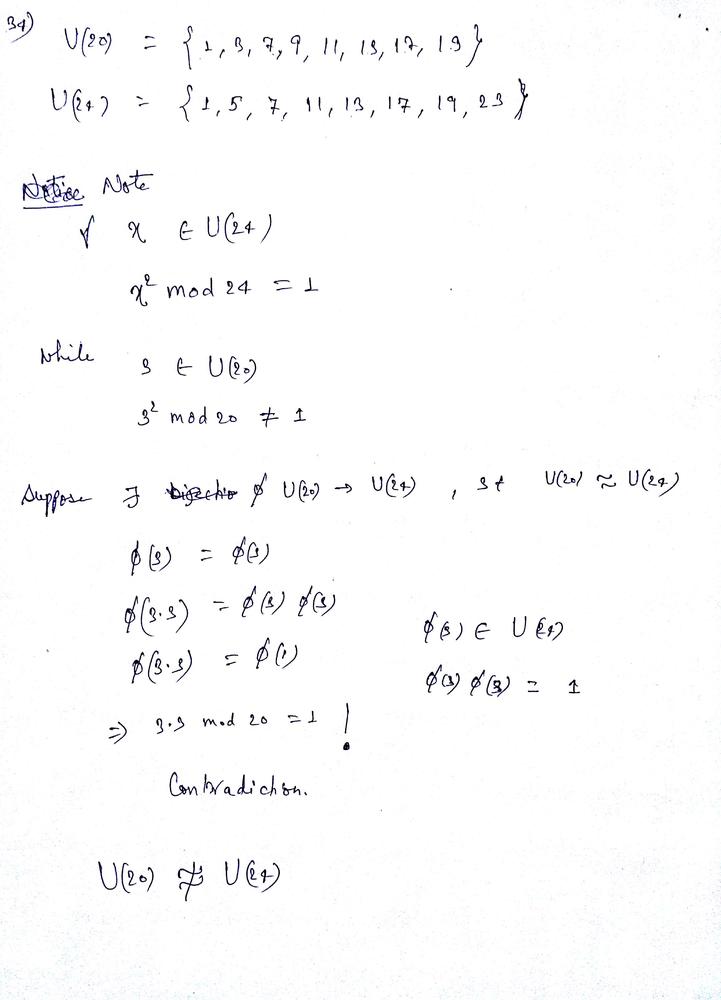 34) U(20) = { 1, 3, 7, 9, 11, 13, 17, 19 }
U(24) = { 1, 5, 7, 11, 13, 17, 19, 23 }
Note
∀ x ∈ U(24)
x² mod 24 = 1
While 3 ∈ U(20)
3² mod 20 ≠ 1
Suppose ∃ ϕ U(20) → U(24) , st U(20) ≈ U(24)
ϕ(3) = ϕ(3)
ϕ(3·3) = ϕ(3) ϕ(3)
ϕ(3) ∈ U(24)
ϕ(3·3) = ϕ(1)
ϕ(3) ϕ(3) = 1
⇒ 3·3 mod 20 = 1 !
Contradiction.
U(20) ≉ U(24)